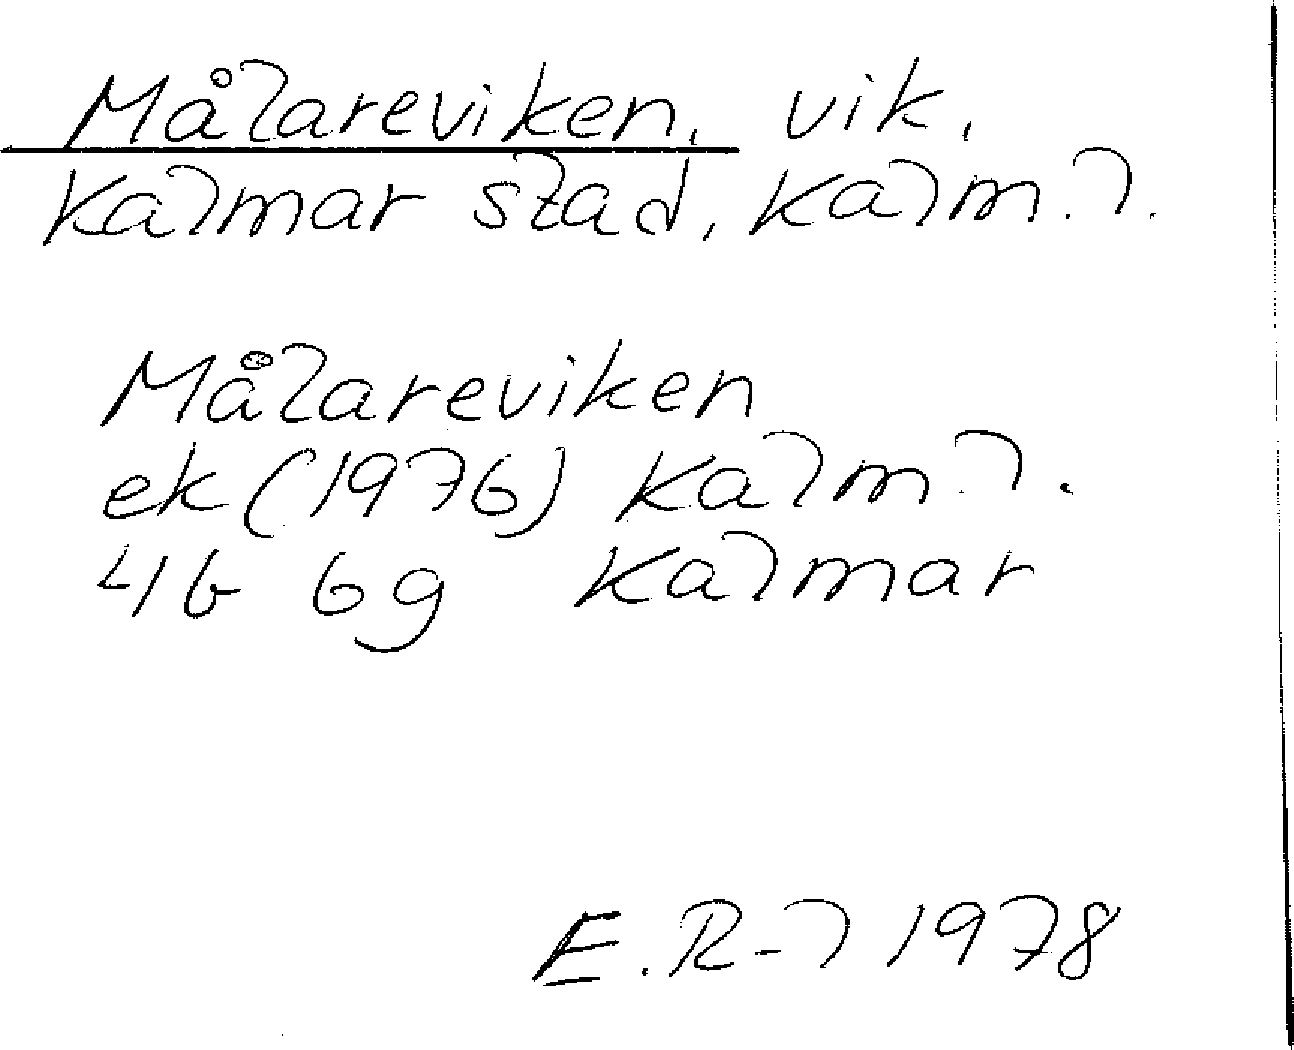 Målareviken, vik,
Kalmar stad, Kalm. l.
Målareviken
ek (1976) Kalm. l.
4G 6g Kalmar
E. R-l 1978